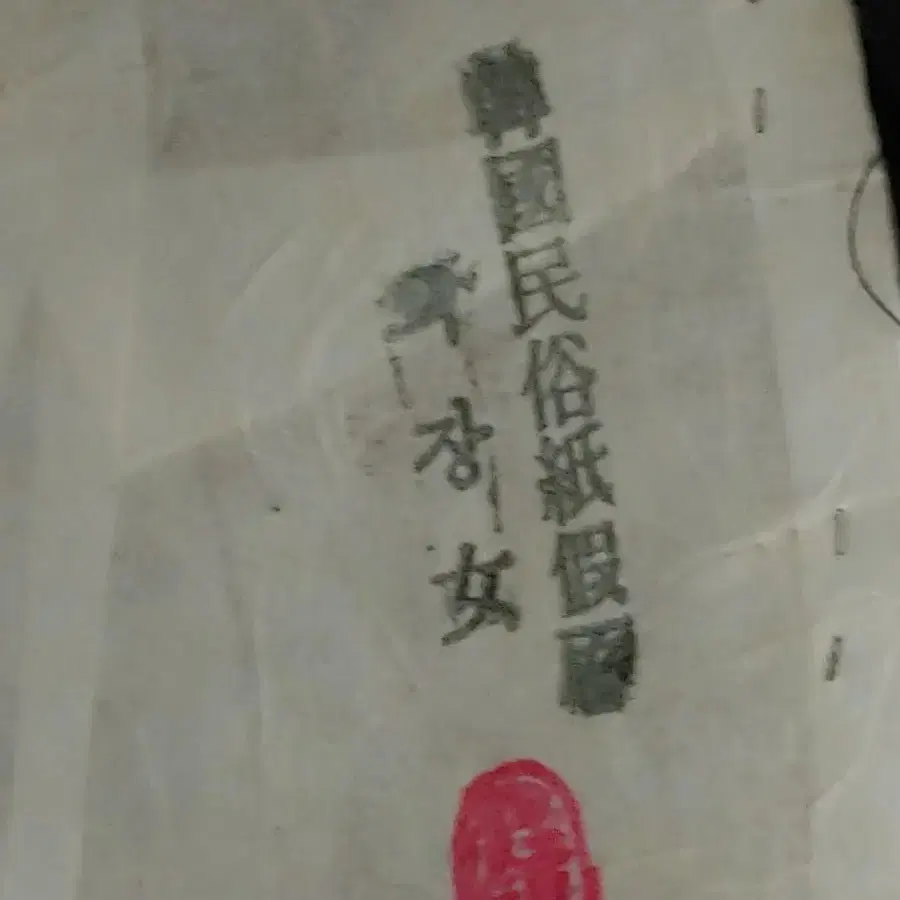 韓國民俗紙假面
장女